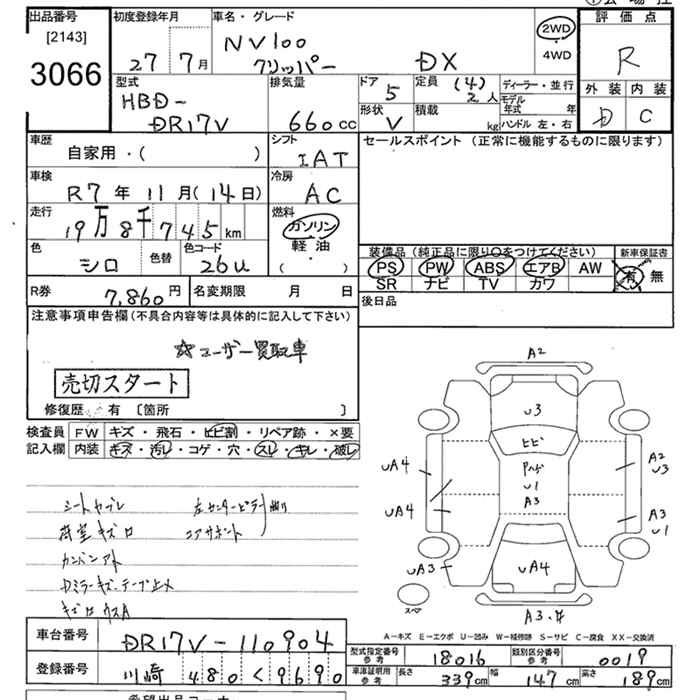 出品番号
[2143]
3066
初度登録年月
27 7月
車名・グレード
NV100
クリッパー DX
2WD
4WD
評価点
R
外装 内装
D C
型式
HBD-
DR17V
排気量
660cc
ドア
5
定員 (4)
2人
形状
V
積載
kg
ディーラー・並行
モデル
年式 年
ハンドル 左・右
車歴
自家用・( )
シフト
IAT
セールスポイント (正常に機能するものに限ります)
車検
R7年11月(14日)
冷房
AC
走行
19万8千745km
燃料
ガソリン
軽油
( )
色
シロ
色替
色コード
26U
装備品 (純正品に限り○をつけてください)
新車保証書
PS PW ABS エアB AW
有 無
SR ナビ TV カワ
R券
7,860円
名変期限 月 日
後日品
注意事項申告欄 (不具合内容等は具体的に記入して下さい)
☆ユーザー買取車
売切スタート
修復歴 有 [箇所 ]
検査員
記入欄
FW キズ・飛石・ヒビ割・リペア跡・×要
内装 キズ・汚レ・コゲ・穴・スレ・キレ・破レ
A2
U3
ヒビ
U1
A3
UA4
UA4
UA3
UA4
A2
U3
A3
U1
スペア
シートヤブレ
荷室キズ
カンバンアト
キズ
左センターピラー曲り
コアサポート
A-キズ E-エクボ U-凹み W-補修跡 S-サビ C-腐食 XX-交換済
車台番号
DR17V-110904
登録番号
川崎 480 く 9690
型式指定番号
参考
18016
類別区分番号
参考
0019
車庫証明用
参考
長さ
339cm
幅
147cm
高さ
189cm